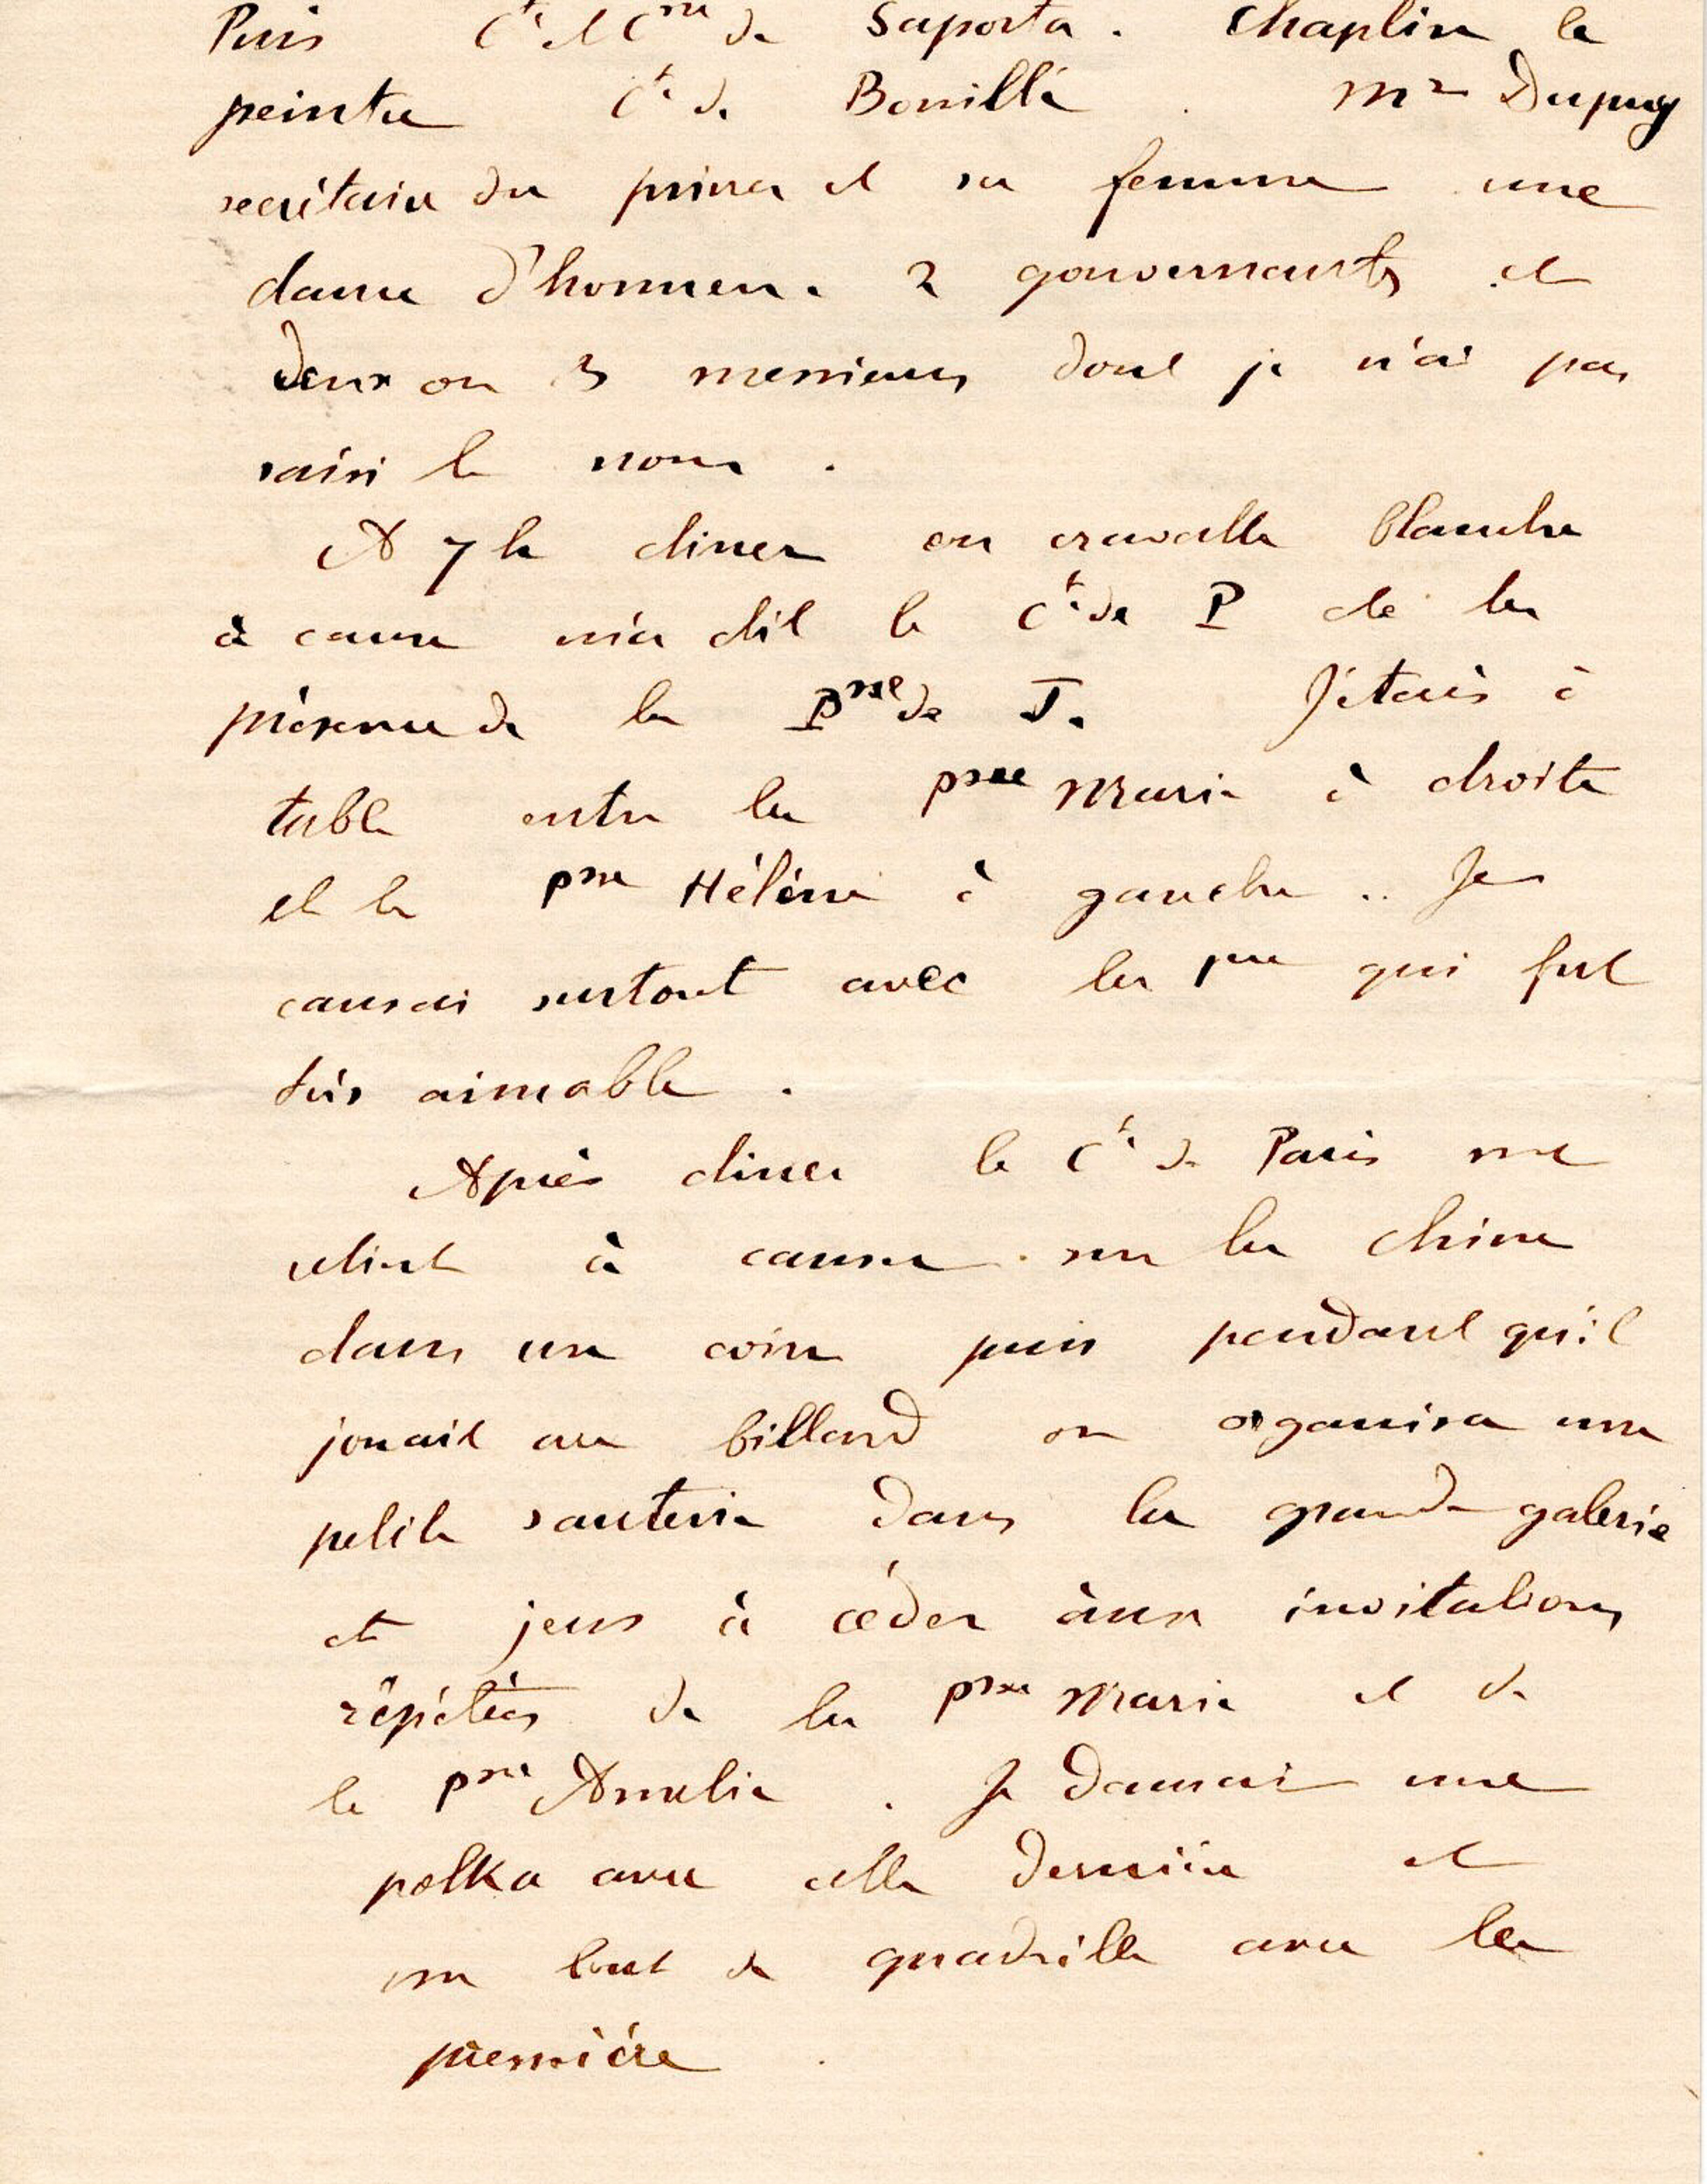 Puis Cte et Csse de Saporta. Chaplin le
peintre Cte de Bouillé. Mr Dupuy
secrétaire du prince et sa femme une
dame d'honneur. 2 gouvernantes et
deux ou 3 messieurs dont je n'ai pas
saisi le nom.
A 7 h diner en cravatte blanche
à cause m'a dit le Cte de P de la
présence de la Psse de J. J'étais à
table entre la psse Marie à droite
et la psse Hélène à gauche.. Je
causai surtout avec la 1re qui fut
très aimable.
Après diner le Cte de Paris me
retint à causer sur la Chine
dans un coin puis pendant qu'il
jouait au billard on organisa une
petite sauterie dans la grande galerie
et jeus à céder àux invitations
répétées de la psse Marie et de
la psse Amelie. Je dansai une
polka avec cette dernière et
un bout de quadrille avec la
première.